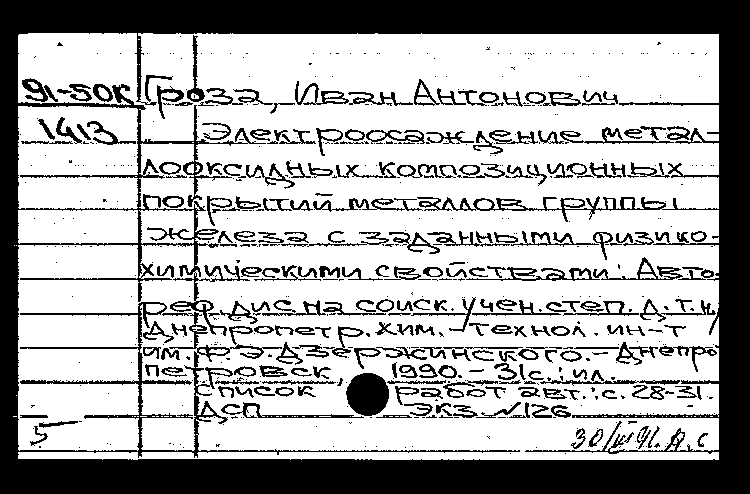 91-50К Гроза, Иван Антонович
1413 Электроосаждение метал-
лооксидных композиционных
покрытий металлов группы
железа с заданными физико-
химическими свойствами: Авто-
реф. дис. на соиск. учен. степ. д.т.н/
Днепропетр. хим.-технол. ин-т
им. Ф.Э.Дзержинского.- Днепро
петровск, 1990.- 31с.: ил.
Список работ авт.: с. 28-31.
ДСП экз. №126
5 30/III 91. А.С